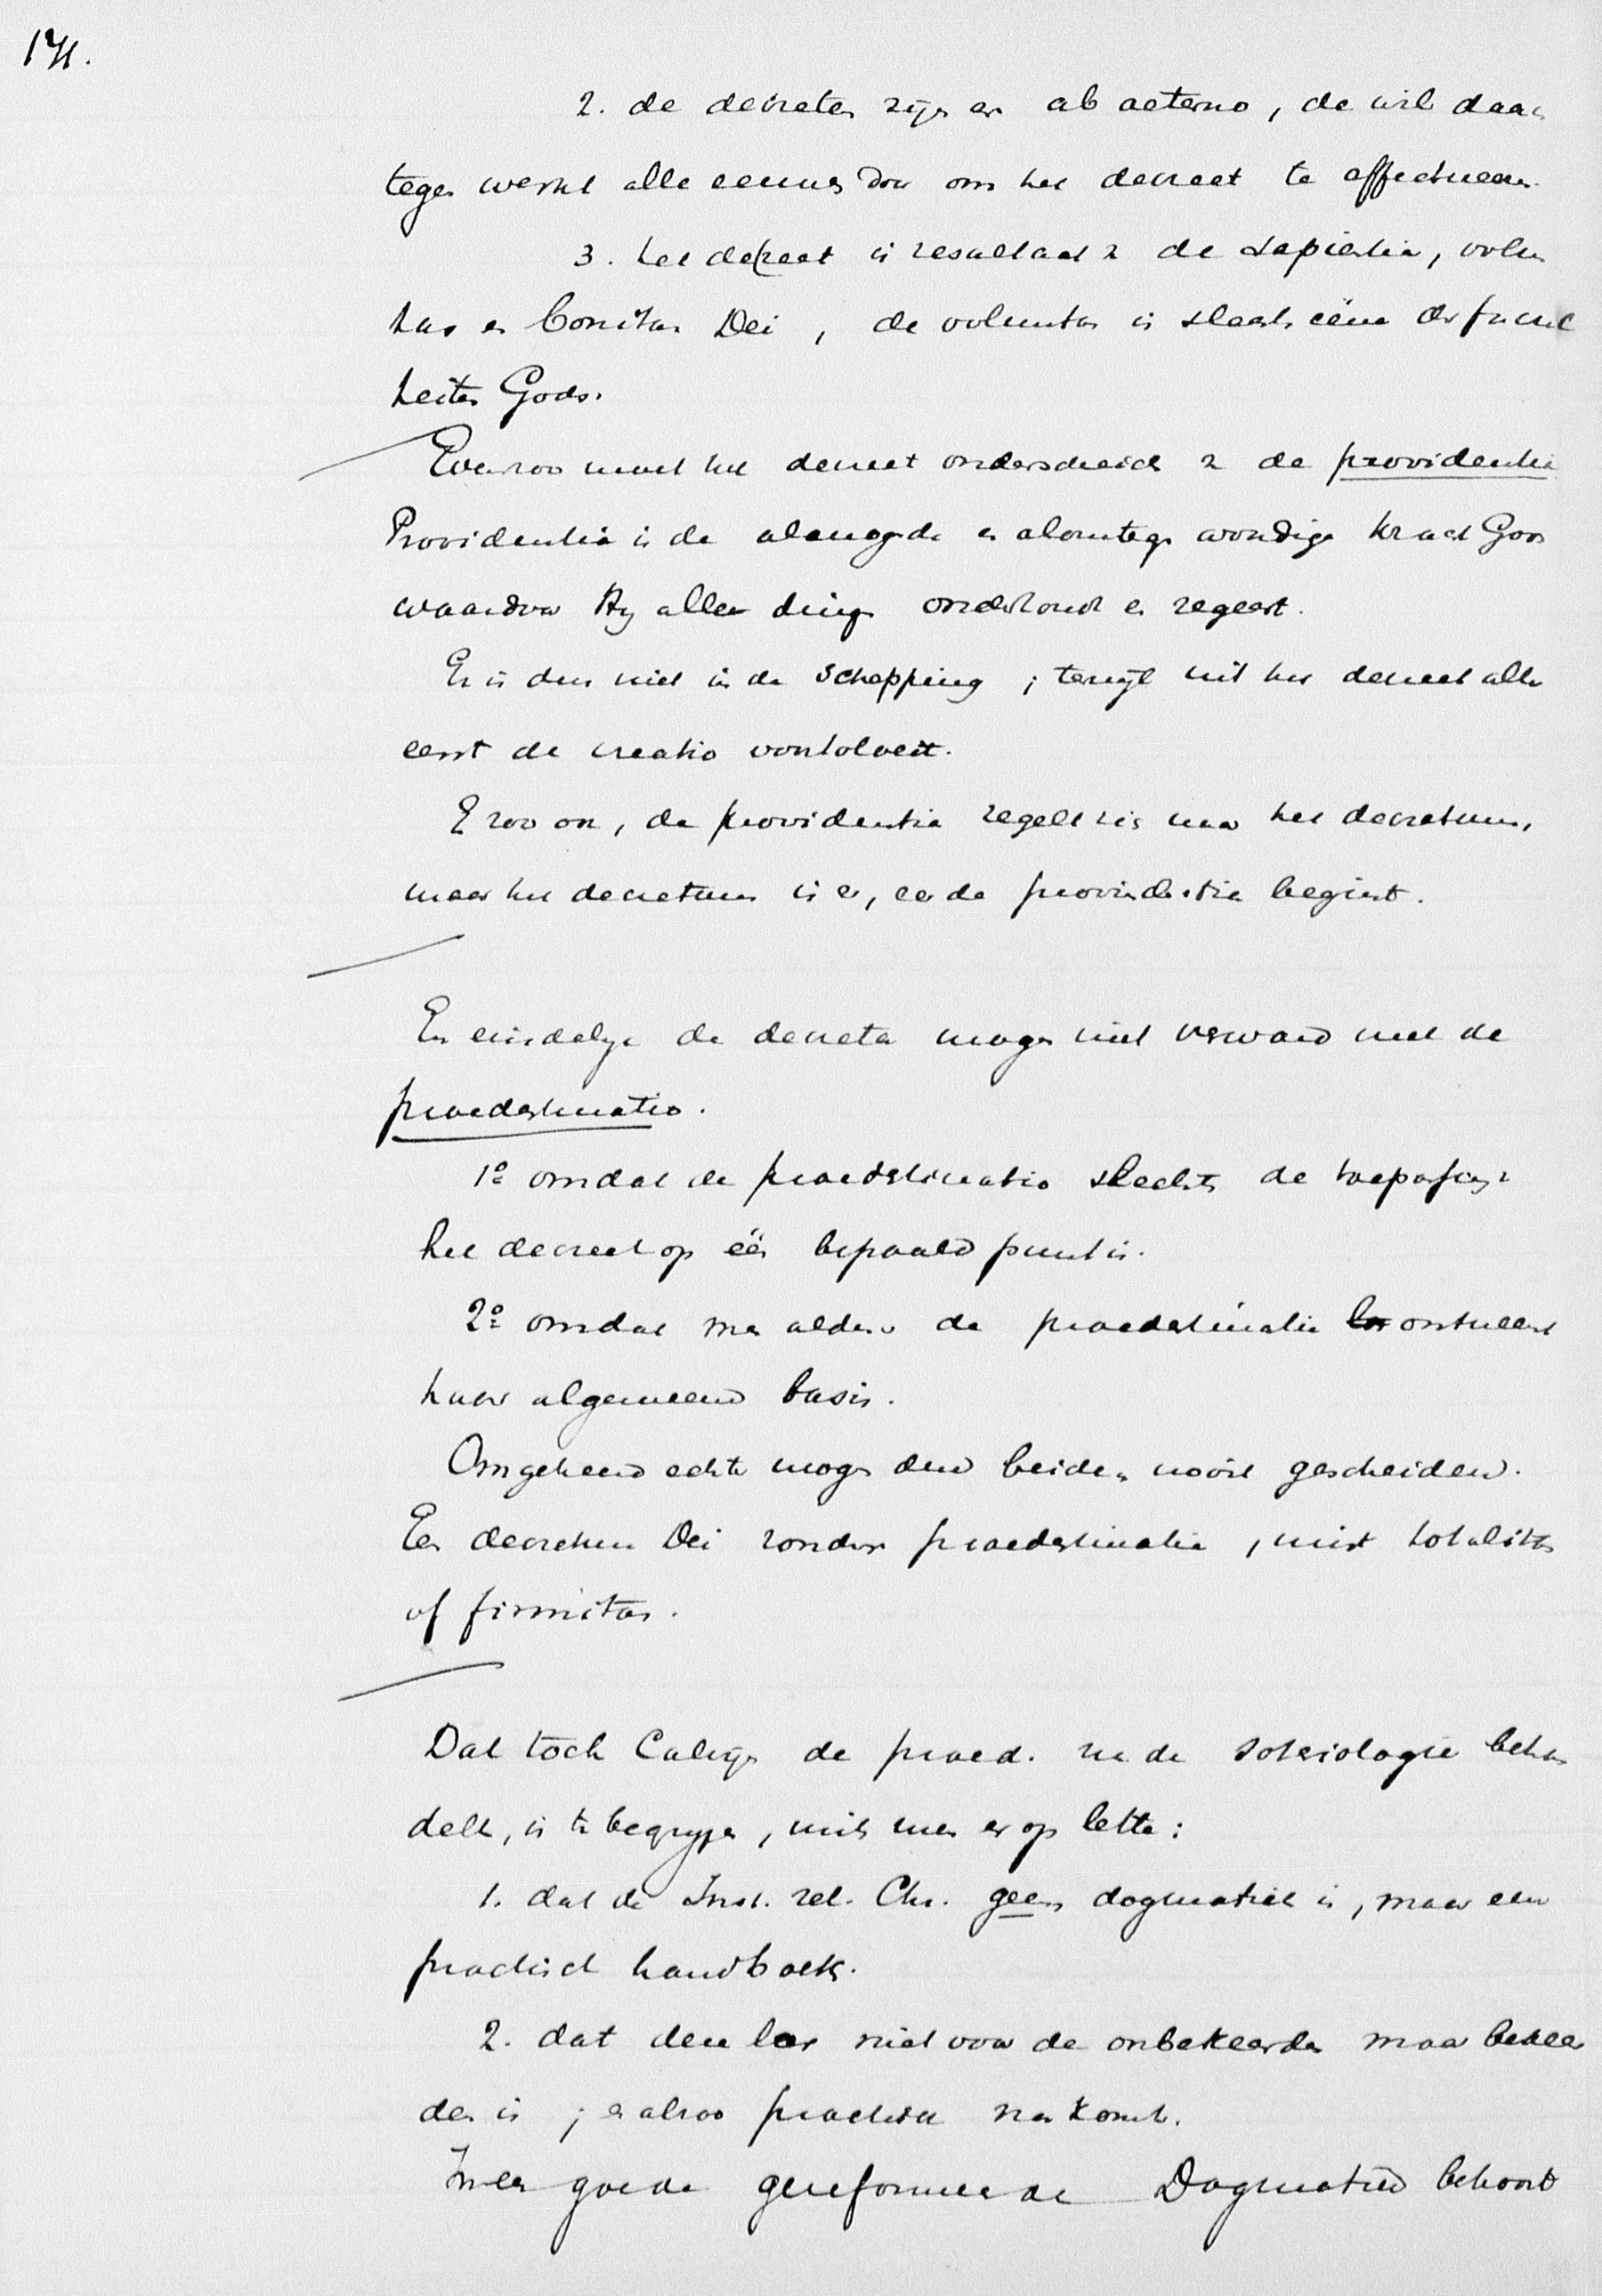 171.
2. de decreten zijn er ab aeterno, de wil daar
tegen werkt alle eeuwen door om het decreet te effectueeren.
3. het decreet is resultaat v de sapientia, volun
tas en bonitas Dei, de voluntas is slechts ééne der
heiten Gods.
Evenzoo moet het decreet onderscheid v de providentia
Providentia is de almogende en alomtegenwoordige kracht Gods
waardoor Hij alle dingen onderhoudt en regeert.
Er is dus niet in de Schepping; terwijl uit het decreet aller
eerst de creatio voortvloeit.
En zoo ook, de providentia regelt zich naar het decretum,
maar het decretum is er, eer de providentia begint.
En eindelijk de decreta mogen niet verward met de
praedestinatio.
1º omdat de praedestinatio slechts de toepassing v
het decreet op één bepaald punt is.
2º omdat men alders de praedestinatie ontneemt
haar algemeene basis.
Omgekeerd echter mogen deze beiden nooit gescheiden.
Een decretum Dei zonder praedestinatie, mist totalitas
of firmitas.
Dat toch Calvijn de praed. na de soteriologie behan
delt, is te begrijpen, mits men er op lette:
1. dat de Inst. rel. Chr. geen dogmatiek is, maar een
practisch handboek.
2. dat deze leer niet voor de onbekeerden maar bekeer
den is; en alzoo practisch na komt.
In een goede gereformeerde Dogmatiek behoort